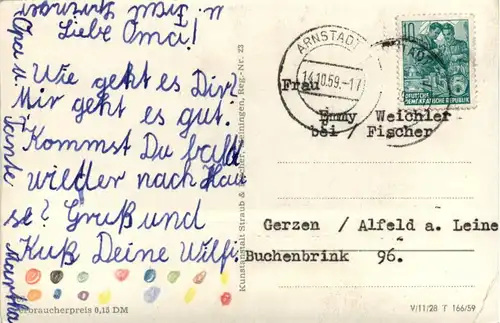 Liebe Oma!
Wie geht es Dir?
Mir geht es gut.
Kommst Du bald
wieder nach Hau
se? Gruß und
Kuß Deine Wilfi.
Opa u.
Tante
Martha
Verbraucherpreis 0,15 DM
Kunstanstalt Straub & Fischer, Meiningen, Reg.-Nr. 23
ARNSTADT
14.10.59.-17
10
DEUTSCHE
DEMOKRATISCHE REPUBLIK
Frau
Emmy Weichler
bei / Fischer
Gerzen / Alfeld a. Leine
Buchenbrink 96.
V/11/28 T 166/59